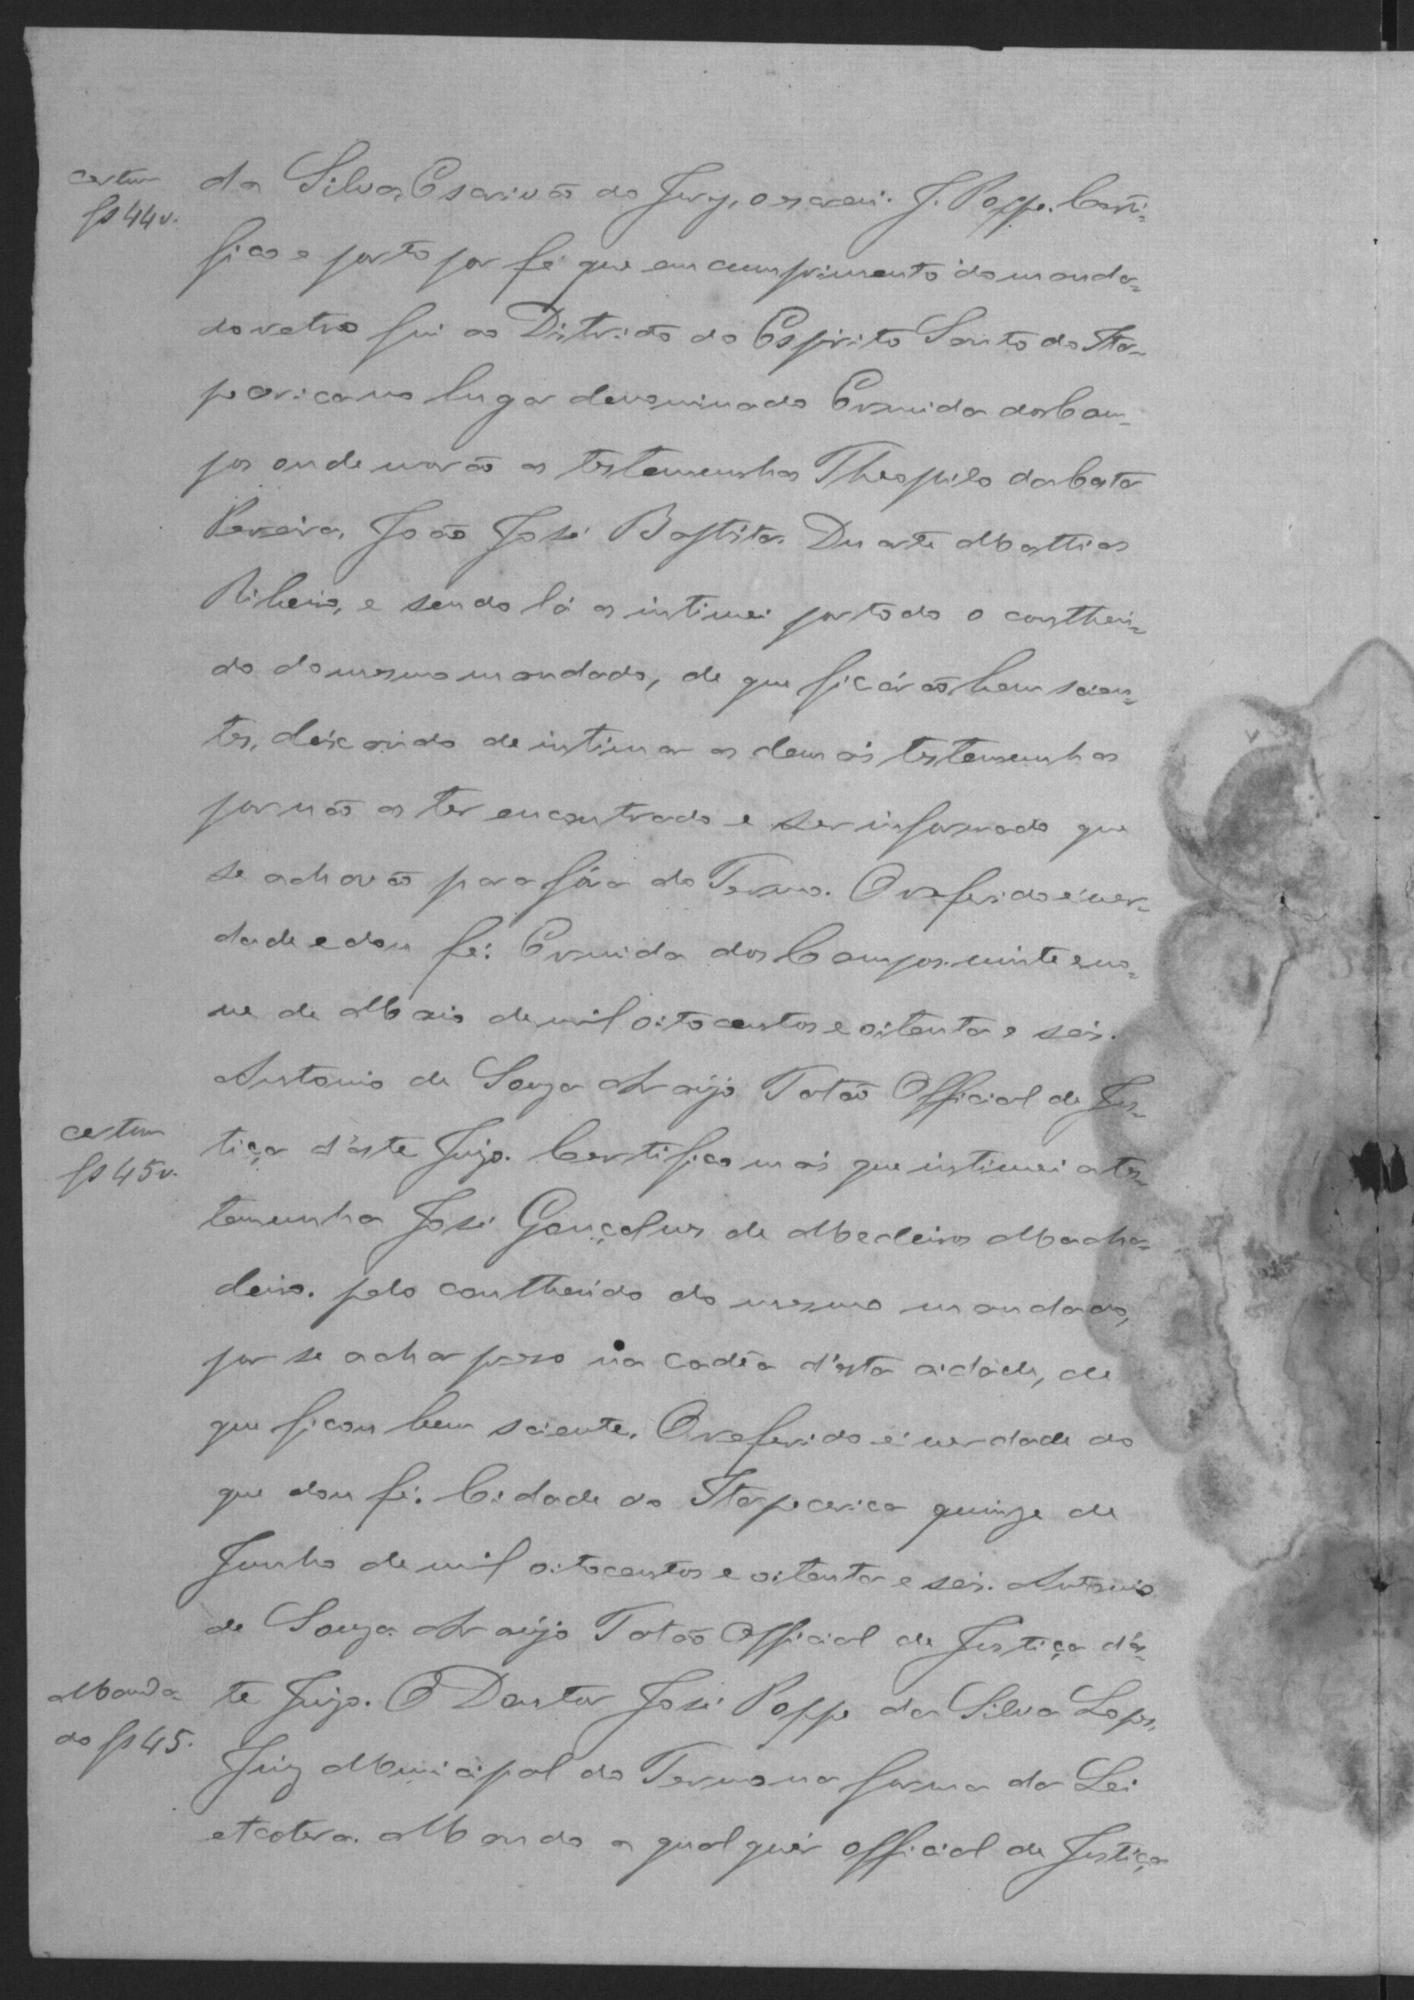 certam
fs 44v.
da Silva, Escrivão do Jury, o escrevi. J. Poppe. Certi-
fico e porto por fé que em cumprimento do manda-
do retro fui ao Distrito do Espirito Santo da Ita-
pecerica no lugar denominado Ermida dos Cam-
pos onde morão as testemunhas Theophilo da Costa
Pereira, João José Baptista. Duarte Mathias
Ribeiro, e sendo lá as intimei por todo o conthei-
do do mesmo mandado, de que ficárão bem scien-
tes, deixando de intimar as demais testemunhas
por não as ter encontrado e ser informado que
se achavão para fóra do Termo. O referido é ver-
dade e dou fé. Ermida dos Campos vinte e no-
ve de Maio de mil oitocentos e oitenta e seis.
Antonio de Souza Araújo Totão Official de Jus-
certam
fs 45v.
tiça d'este Juizo. Certifico mais que intimei a tes-
temunha José Gonçalves de Medeiros Macha-
deiro. pelo contheudo do mesmo mandado,
por se achar preso na cadêa d'esta cidade, de
que ficou bem sciente. O referido é verdade do
que dou fé. Cidade da Itapecerica quinze de
Junho de mil oitocentos e oitenta e seis. Antonio
de Souza Araújo Totão Official de Justiça d'es-
Manda-
do fs 45.
te Juizo. O Doutor José Poppe da Silva Lopes,
Juiz Municipal do Termo na forma da Lei
etcetera. Mando a qualquér official de Justiça